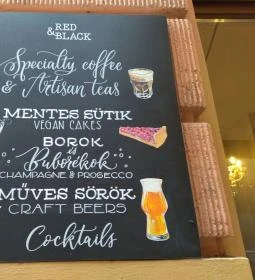 RED
&BLACK
Specialty coffee
& Artisan teas
MENTES SÜTIK
VEGAN CAKES
BOROK
és
Buborékok
CHAMPAGNE & PROSECCO
MŰVES SÖRÖK
CRAFT BEERS
Cocktails